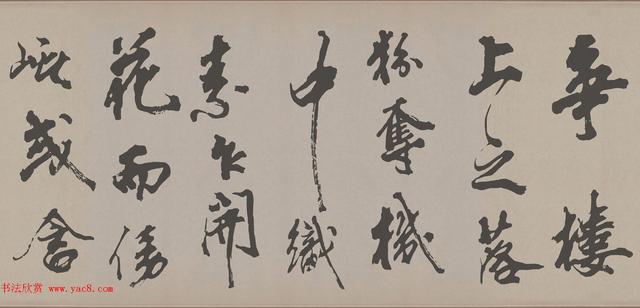 爭樓
上之落
粉奪機
中織
素乍開
花而傍
或含
书法欣赏 www.yac8.com